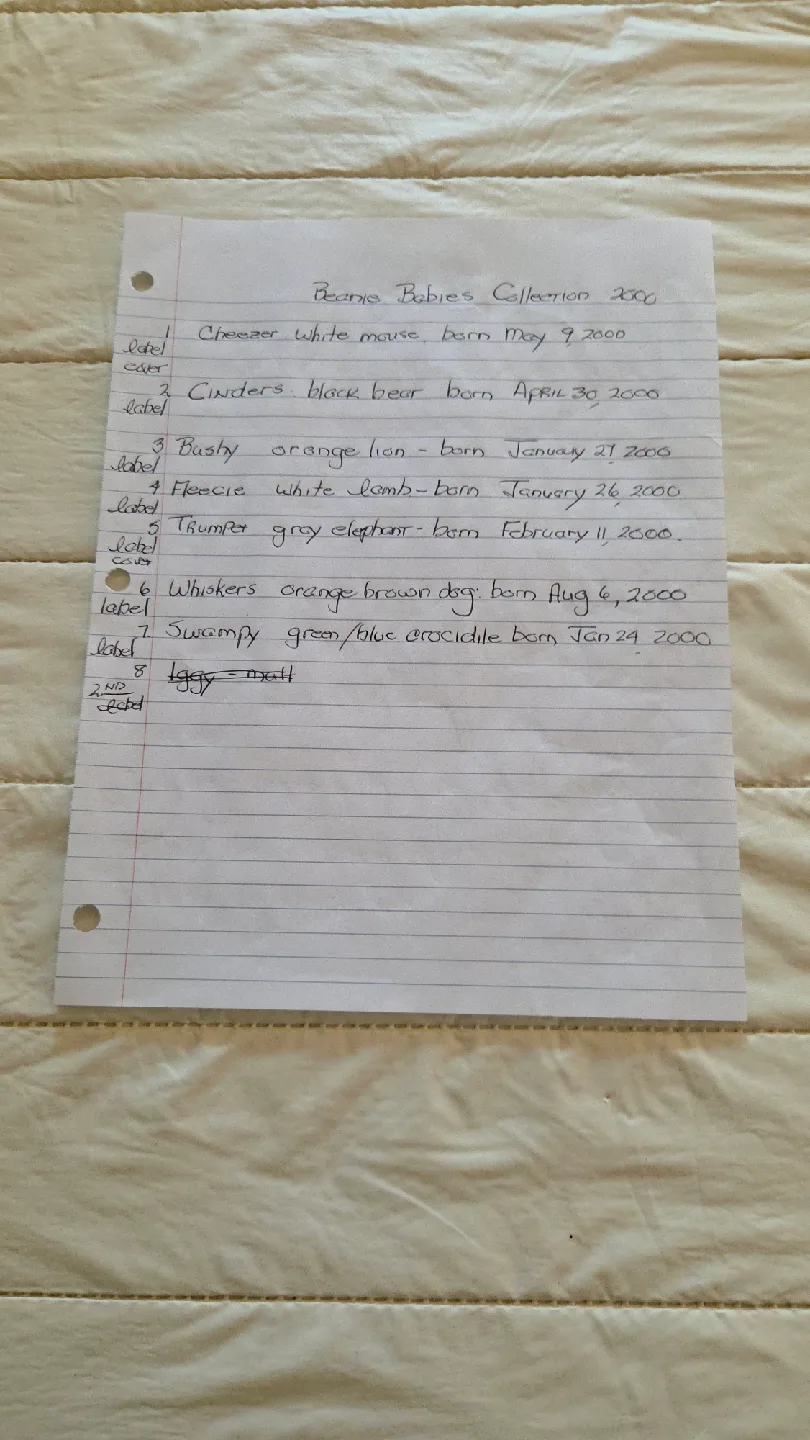 Beanie Babies Collection 2000
1 Cheezer white mouse. born May 9, 2000
label
cover
2 Cinders. black bear born APRIL 30, 2000
label
3 Bushy orange lion - born January 27, 2000
label
4 Fleecie white lamb - born January 26, 2000
label
5 Trumpet gray elephant - born February 11, 2000.
label
cover
6 Whiskers orange brown dog. born Aug 6, 2000
label
7 Swampy green/blue crocidile born Jan 24, 2000
label
8 Iggy - matt
2ND
label